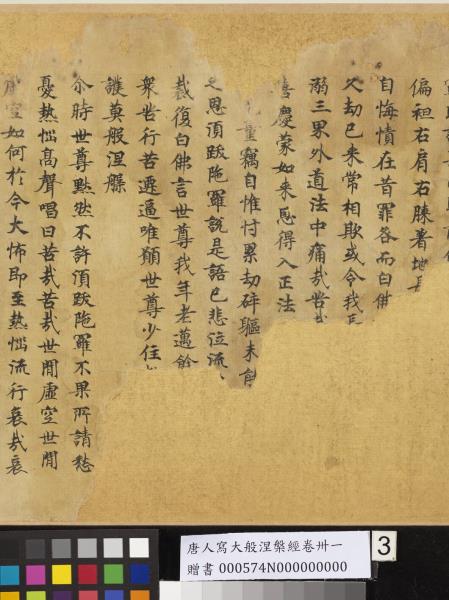 偏袒右肩右膝著地
自悔憤在昔罪咎而白佛
久劫已來常相欺或令我長
溺三界外道法中痛哉苦
喜慶蒙如來恩得入正法
量竊自惟忖累劫碎軀未能
之恩須跋陁羅說是語已悲泣流
裁復白佛言世尊我年老邁餘
衆苦行苦遷逼唯願世尊少住
護莫般涅槃
尒時世尊黙然不許須跋陁羅不果所請愁
憂熱惱髙聲唱曰苦哉苦哉世間虛空世間
空如何於今大怖即至熱惱流行哀哉哀
唐人寫大般涅槃經卷卅一
贈書 000574N000000000
3